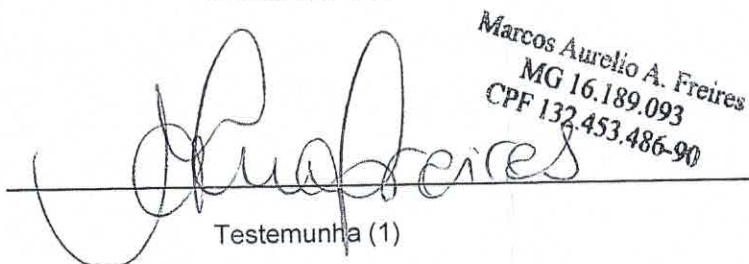 Marcos Aurelio A. Freires
MG 16.189.093
CPF 132.453.486-90
Freires
Testemunha (1)